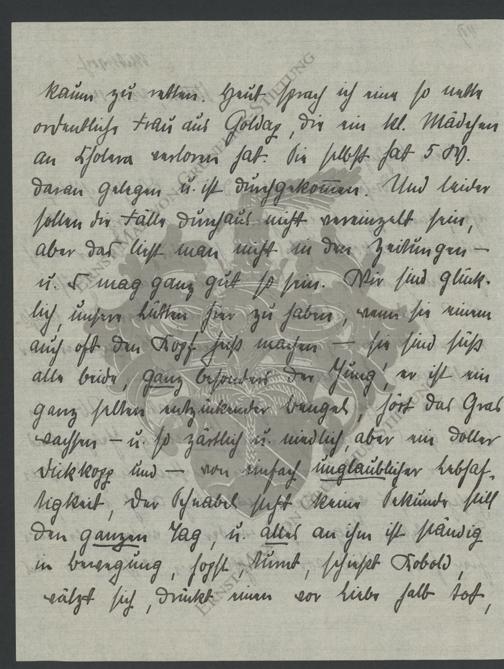 kaum zu retten. Heut sprach ich eine so nette
ordentliche Frau aus Goldap, die ein kl. Mädchen
an Cholera verloren hat. Sie selbst hat 5 W.
daran gelegen u. ist durchgekommen. Und leider
sollen die Fälle durchaus nicht vereinzelt sein,
aber das liest man nicht in den Zeitungen –
u. s mag ganz gut so sein. Wir sind glück-
lich, unsere Lütten hier zu haben, wenn sie einem
auch oft den Kopf heiß machen – sie sind süß
alle beide, ganz besonders der Jung', er ist ein
ganz selten entzückender Bengel, hört das Gras
wachsen – u. so zärtlich u. niedlich, aber ein doller
Dickkopp und – von einfach unglaublicher Lebhaf-
tigkeit, der Schnabel steht keine Sekunde still
den ganzen Tag, u. alles an ihm ist ständig
in Bewegung, hopst, turnt, schießt Kobold,
wälzt sich, drückt einen vor Liebe halb tot,
ERNST VON
STIFTUNG